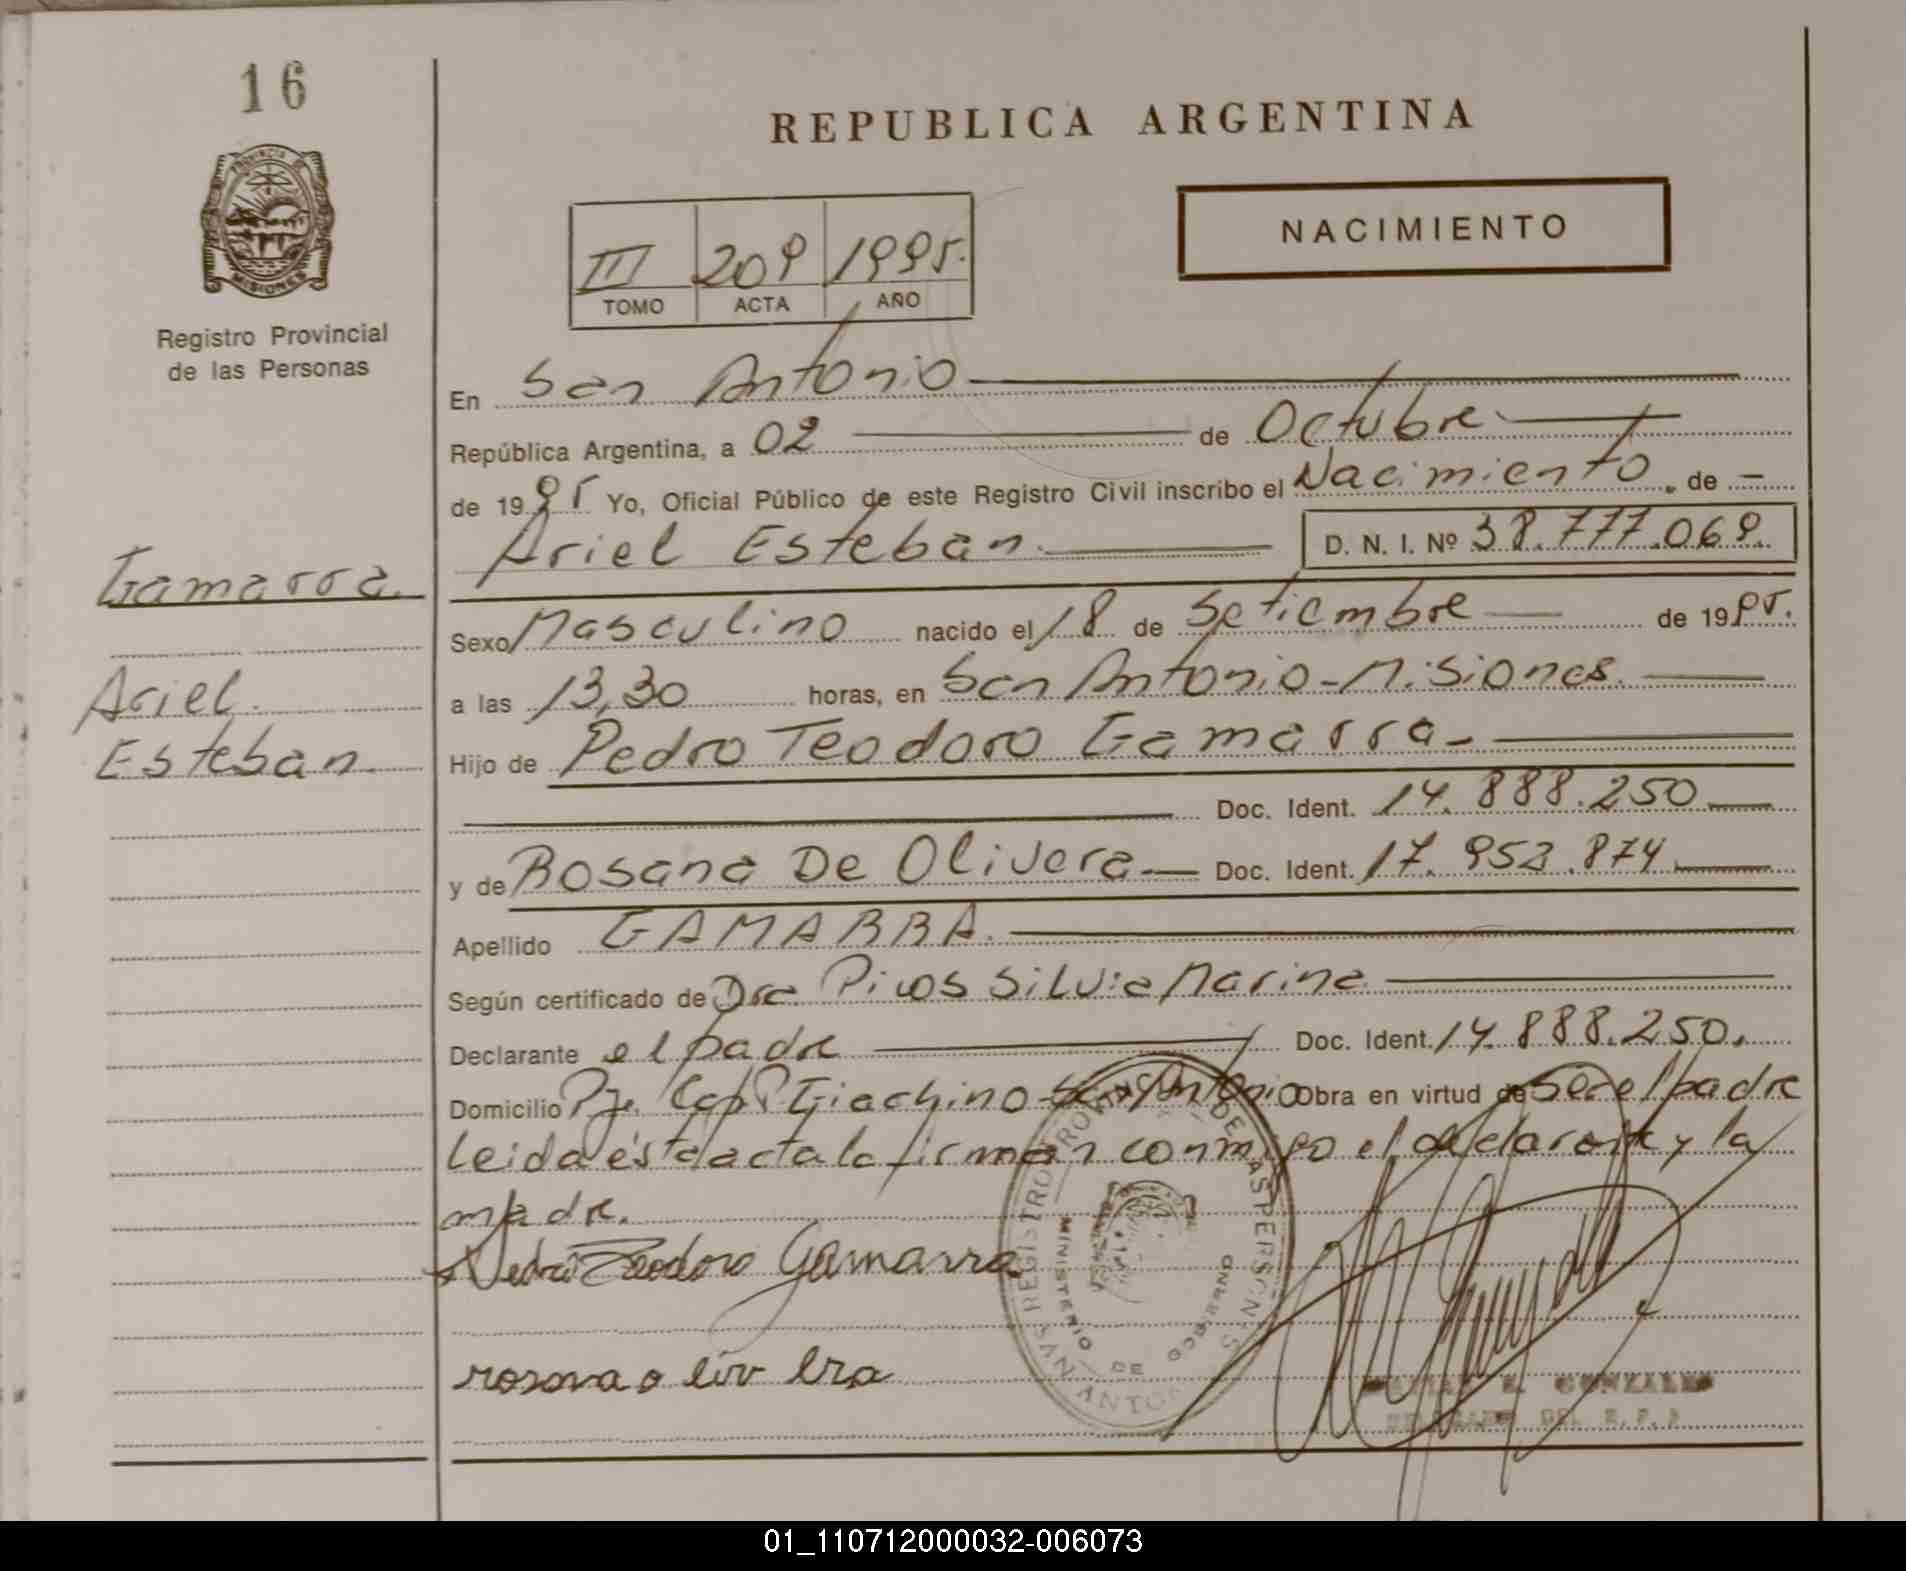 16
REPUBLICA ARGENTINA
PROVINCIA DE
MISIONES
Registro Provincial
de las Personas
III 209 1995.
TOMO ACTA AÑO
NACIMIENTO
En San Antonio
República Argentina, a 02 de Octubre
de 1995 Yo, Oficial Público de este Registro Civil inscribo el Nacimiento. de —
Ariel Esteban. D. N. I. Nº 38.777.069.
Gamarra.
Ariel.
Esteban
Sexo Masculino nacido el 18 de Setiembre de 1995.
a las 13,30 horas, en San Antonio - Misiones.
Hijo de Pedro Teodoro Gamarra.
Doc. Ident. 14.888.250
y de Rosana De Olivera Doc. Ident. 17.953.874
Apellido GAMARRA.
Según certificado de Dra. Silvia Marina
Declarante el padre Doc. Ident. 14.888.250.
Domicilio Pje. Cap. Giachino - San Antonio Obra en virtud de Ser el padre
Leida ésta acta la firman conmigo el declarante y la
madre.
Pedro Teodoro Gamarra
rosana oliv era
REGISTRO PROVINCIAL DE LAS PERSONAS
MINISTERIO DE GOBIERNO
SAN ANTONIO
E. GONZALEZ
01_110712000032-006073